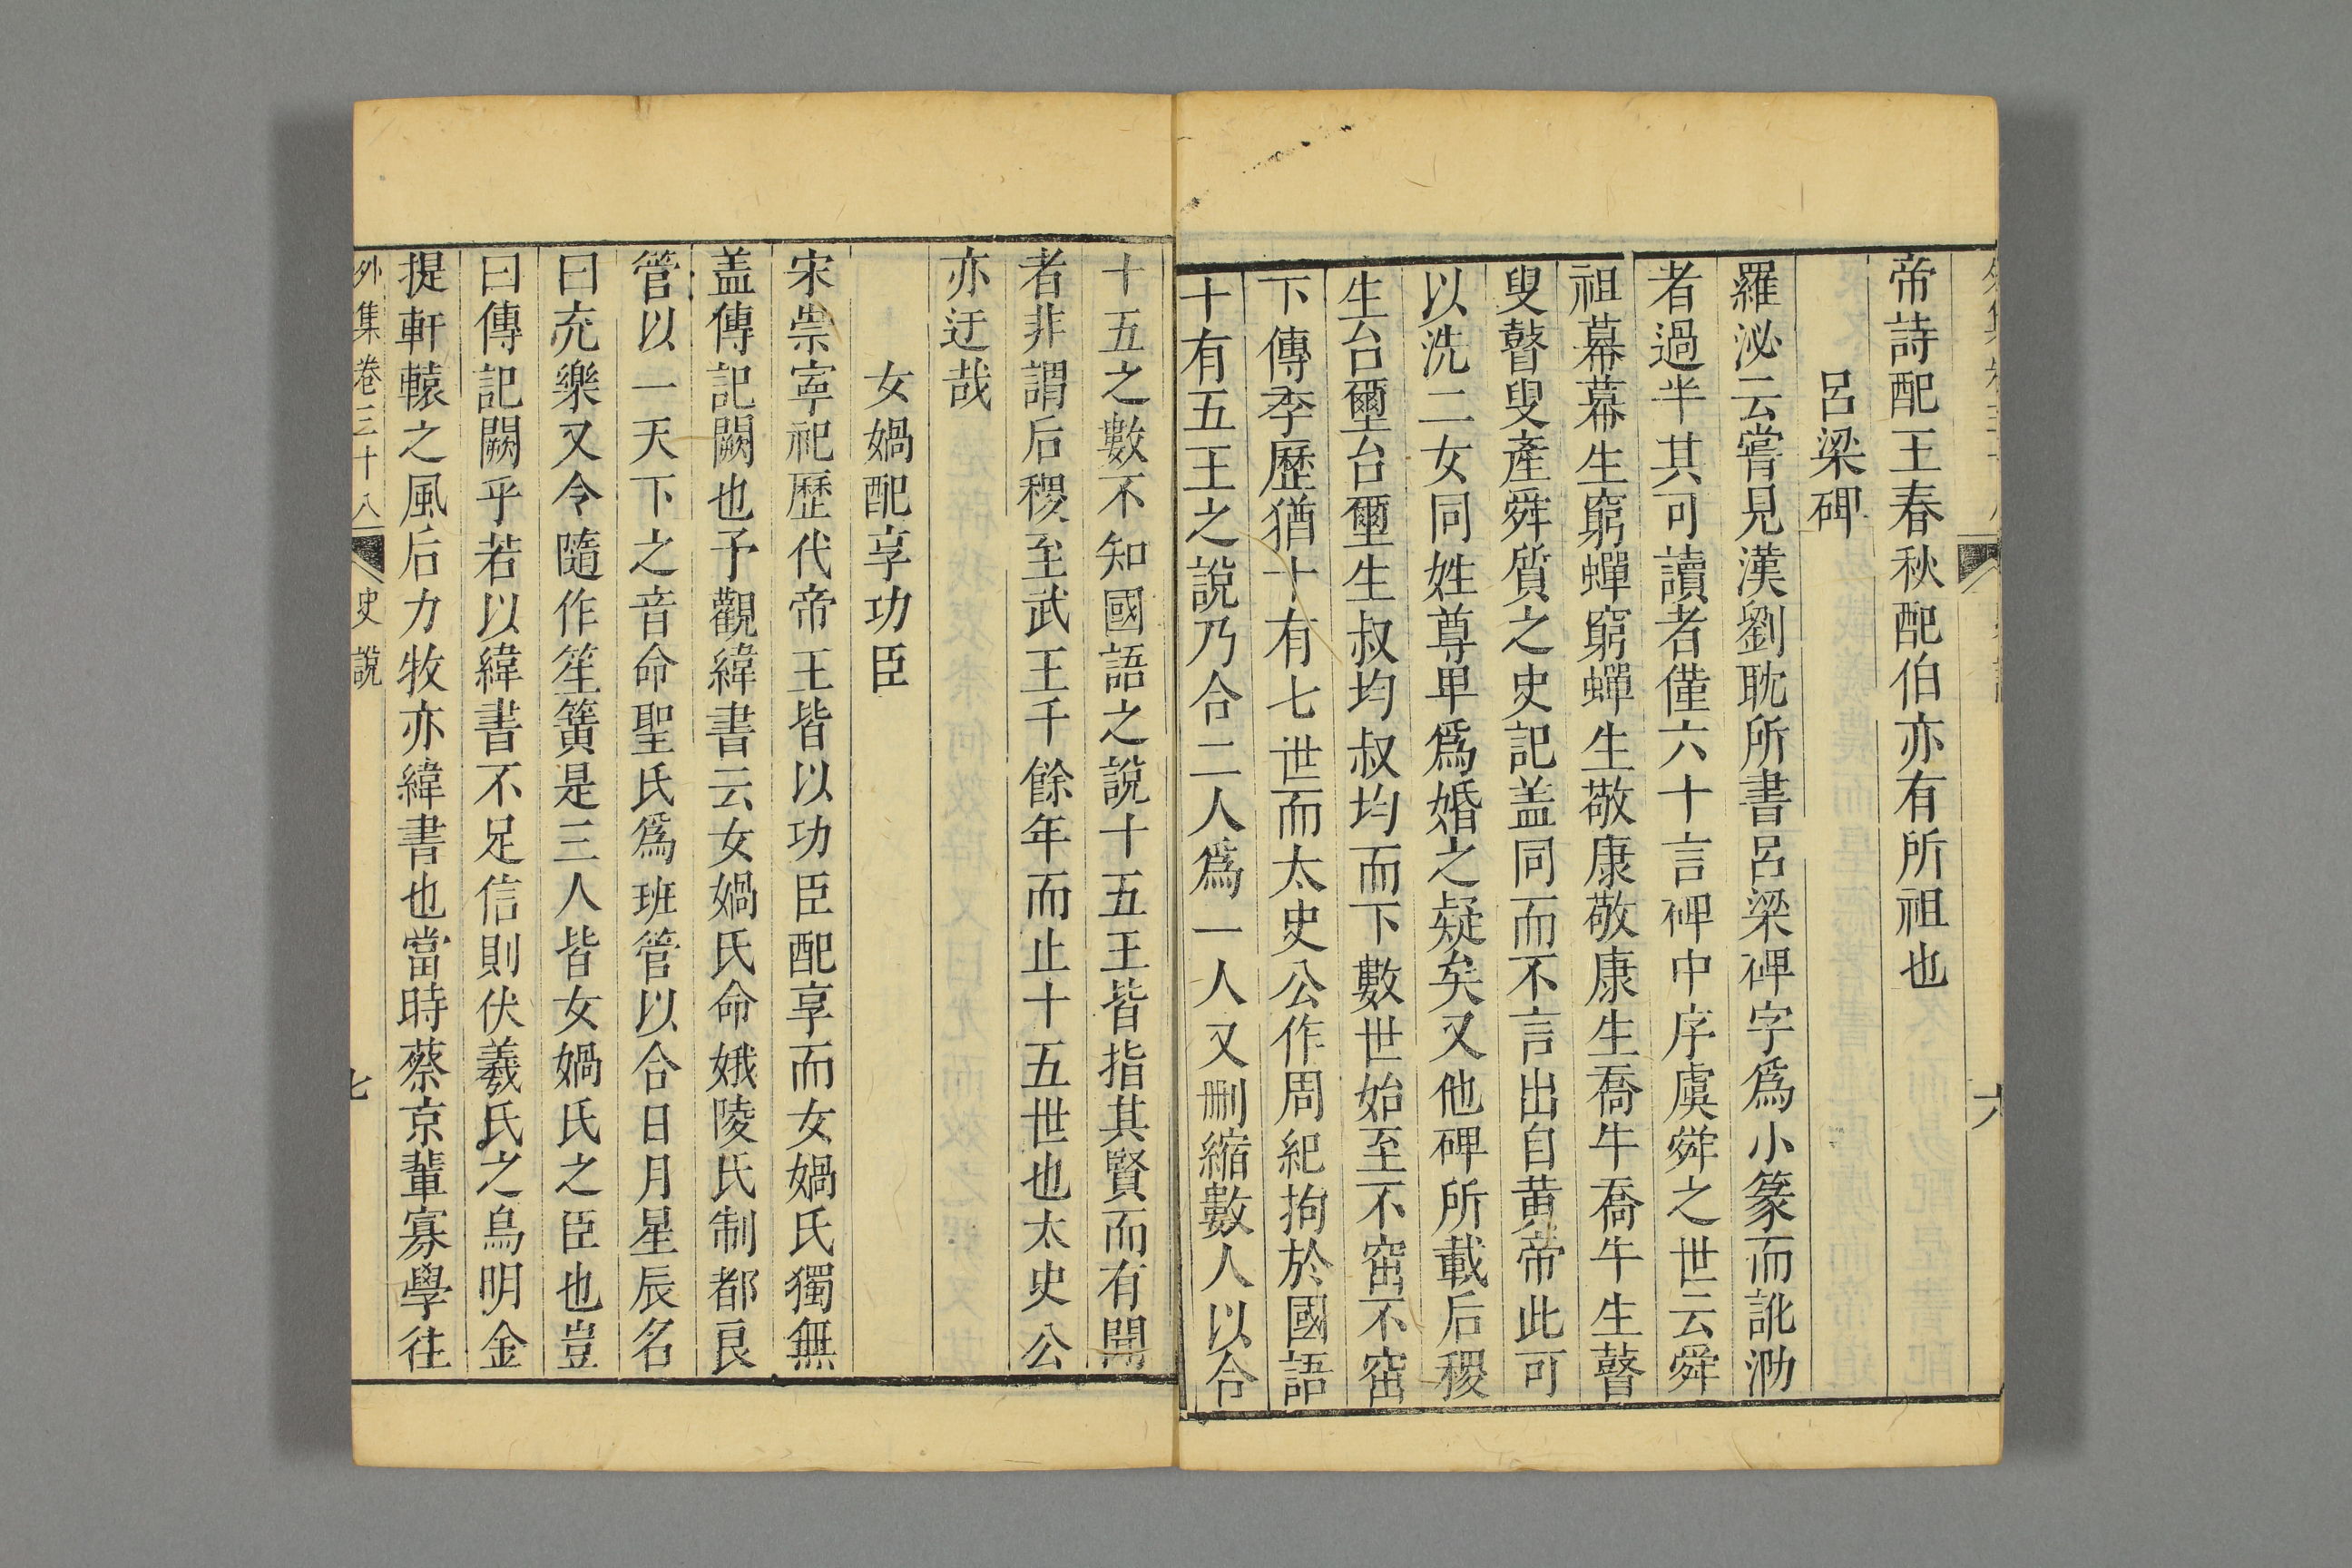 帝詩配王春秋配伯亦有所祖也
呂梁碑
羅泌云嘗見漢劉耽所書呂梁碑字為小篆而訛泐
者過半其可讀者僅六十言碑中序虞舜之世云舜
祖幕幕生窮蟬窮蟬生敬康敬康生喬牛喬牛生瞽
叟瞽叟產舜質之史記盖同而不言出自黄帝此可
以洗二女同姓尊卑爲婚之疑矣又他碑所載后稷
生台璽台璽生叔均叔均而下數世始至不窋不窋
下傳季歷猶十有七世而太史公作周紀拘於國語
十有五王之說乃合二人爲一人又刪縮數人以合
十五之數不知國語之說十五王皆指其賢而有聞
者非謂后稷至武王千餘年而止十五世也太史公
亦迂哉
女媧配享功臣
宋崇寧祀歷代帝王皆以功臣配享而女媧氏獨無
盖傳記闕也予觀緯書云女媧氏命娥陵氏制都良
管以一天下之音命聖氏爲班管以合日月星辰名
曰充樂又令隨作笙簧是三人皆女媧氏之臣也豈
曰傳記闕乎若以緯書不足信則伏羲氏之烏明金
提軒轅之風后力牧亦緯書也當時蔡京輩寡學往
外集卷三十八 史說 七